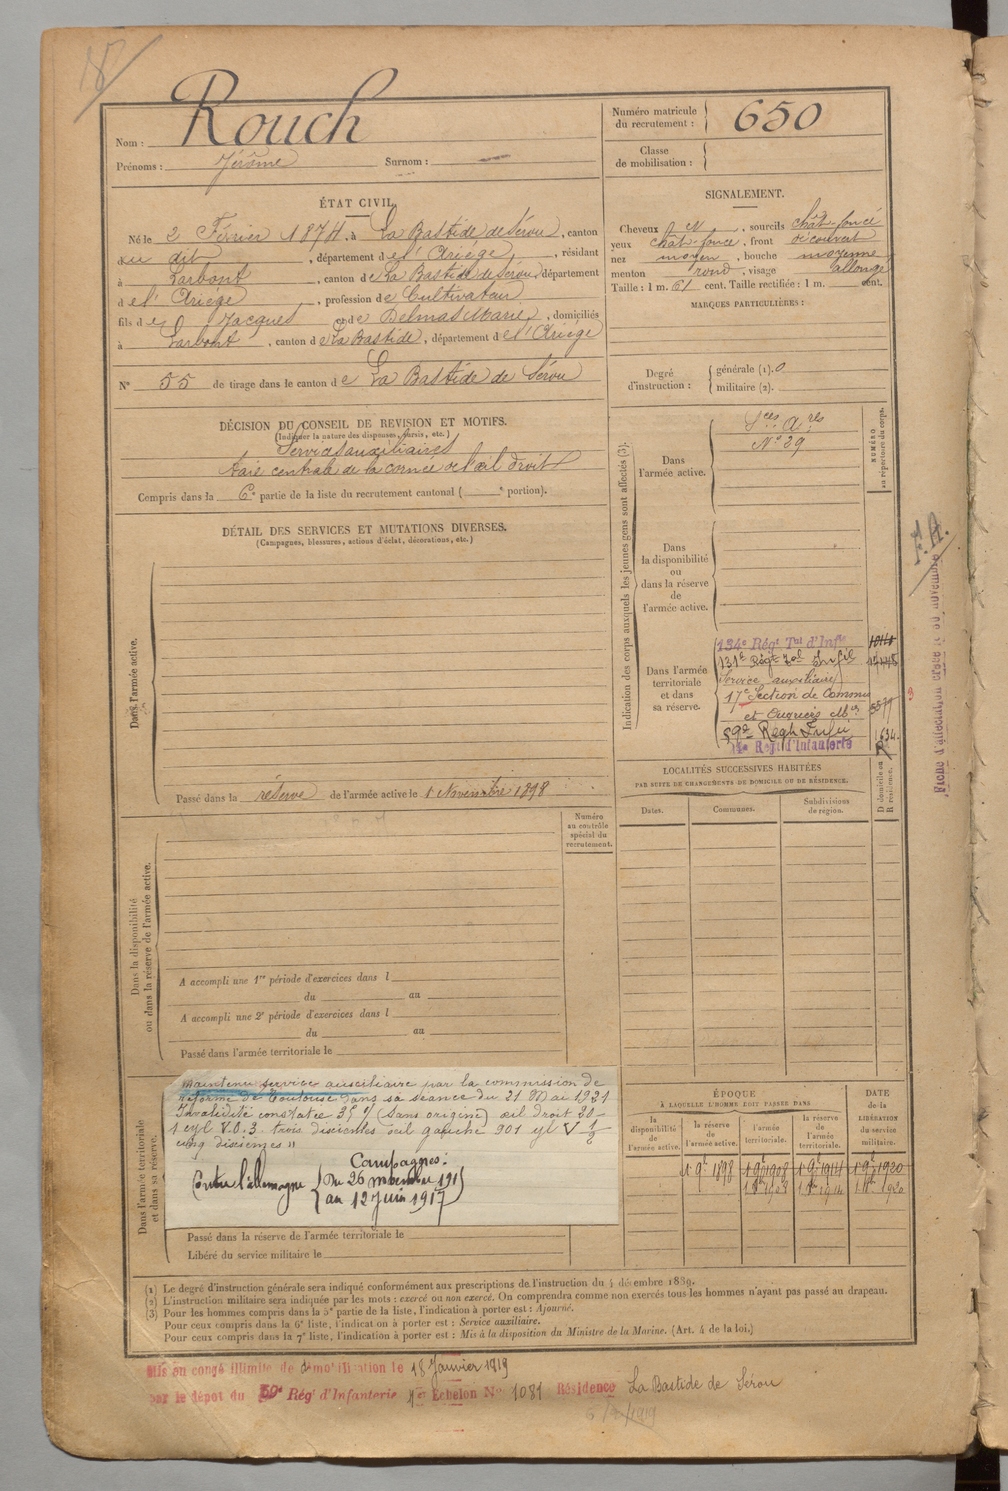 Nom : Rouch
Prénoms : Jérôme Surnom :
Numéro matricule du recrutement : 650
Classe de mobilisation :
ÉTAT CIVIL.
Né le 2 Février 1874, à La Bastide de Sérou, canton
du dit, département de l'Ariége, résidant
à Larbont, canton de La Bastide de Sérou, département
de l'Ariége, profession de Cultivateur
fils de Jacques et de Delmas Marie, domiciliés
à Larbont, canton de La Bastide, département de l'Ariège
N° 55 de tirage dans le canton de La Bastide de Sérou
SIGNALEMENT.
Cheveux N, sourcils chât-foncé
yeux chât-foncé, front découvert
nez moyen, bouche moyenne
menton rond, visage allongé
Taille : 1 m. 61 cent. Taille rectifiée : 1 m. cent.
MARQUES PARTICULIÈRES :
Degré d'instruction : générale (1). 0
militaire (2).
DÉCISION DU CONSEIL DE REVISION ET MOTIFS.
(Indiquer la nature des dispenses, sursis, etc.)
Services auxiliaires
taie centrale de la cornée de l'œil droit
Compris dans la 6e partie de la liste du recrutement cantonal ( e portion).
DÉTAIL DES SERVICES ET MUTATIONS DIVERSES.
(Campagnes, blessures, actions d'éclat, décorations, etc.)
Dans l'armée active.
Passé dans la réserve de l'armée active le 1 Novembre 1898
Indication des corps auxquels les jeunes gens sont affectés (3).
NUMÉRO au répertoire du corps.
Dans l'armée active.
Sces Ares
N° 29
Dans la disponibilité ou dans la réserve de l'armée active.
Dans l'armée territoriale et dans sa réserve.
134e Régt Tal d'Infie
131e Régt Tal Infie
Service auxiliaire
17e Section de Commis
et Ouvriers
59e Regt Infie 634
Régt d'Infanterie
LOCALITÉS SUCCESSIVES HABITÉES
PAR SUITE DE CHANGEMENTS DE DOMICILE OU DE RÉSIDENCE.
Dates. Communes. Subdivisions de région. D domicile ou R résidence.
Numéro au contrôle spécial du recrutement.
Dans la disponibilité ou dans la réserve de l'armée active.
A accompli une 1re période d'exercices dans l
du au
A accompli une 2e période d'exercices dans l
du au
Passé dans l'armée territoriale le
Dans l'armée territoriale et dans sa réserve.
Maintenu service auxiliaire par la commission de
réforme de Toulouse dans sa séance du 21 Mai 1921
Invalidité constatée (Sans origine) œil droit
trois dixièmes œil gauche
cinq dixièmes "
Campagnes :
Contre l'allemagne { Du 26 novembre 191
au 12 Juin 1917
Passé dans la réserve de l'armée territoriale le
Libéré du service militaire le
ÉPOQUE
À LAQUELLE L'HOMME DOIT PASSER DANS
DATE de la LIBÉRATION du service militaire.
la disponibilité de l'armée active. la réserve de l'armée active. l'armée territoriale. la réserve de l'armée territoriale.
1 9e 1898 1 9e 1908 1 9e 1914 1 9e 1920
(1) Le degré d'instruction générale sera indiqué conformément aux prescriptions de l'instruction du 4 décembre 1889.
(2) L'instruction militaire sera indiquée par les mots : exercé ou non exercé. On comprendra comme non exercés tous les hommes n'ayant pas passé au drapeau.
(3) Pour les hommes compris dans la 5e partie de la liste, l'indication à porter est : Ajourné.
Pour ceux compris dans la 6e liste, l'indication à porter est : Service auxiliaire.
Pour ceux compris dans la 7e liste, l'indication à porter est : Mis à la disposition du Ministre de la Marine. (Art. 4 de la loi.)
Mis en congé illimité de démobilisation le 18 Janvier 1919
par le dépot du 59e Rég. d'Infanterie Echelon N° 1081 Résidence La Bastide de Sérou